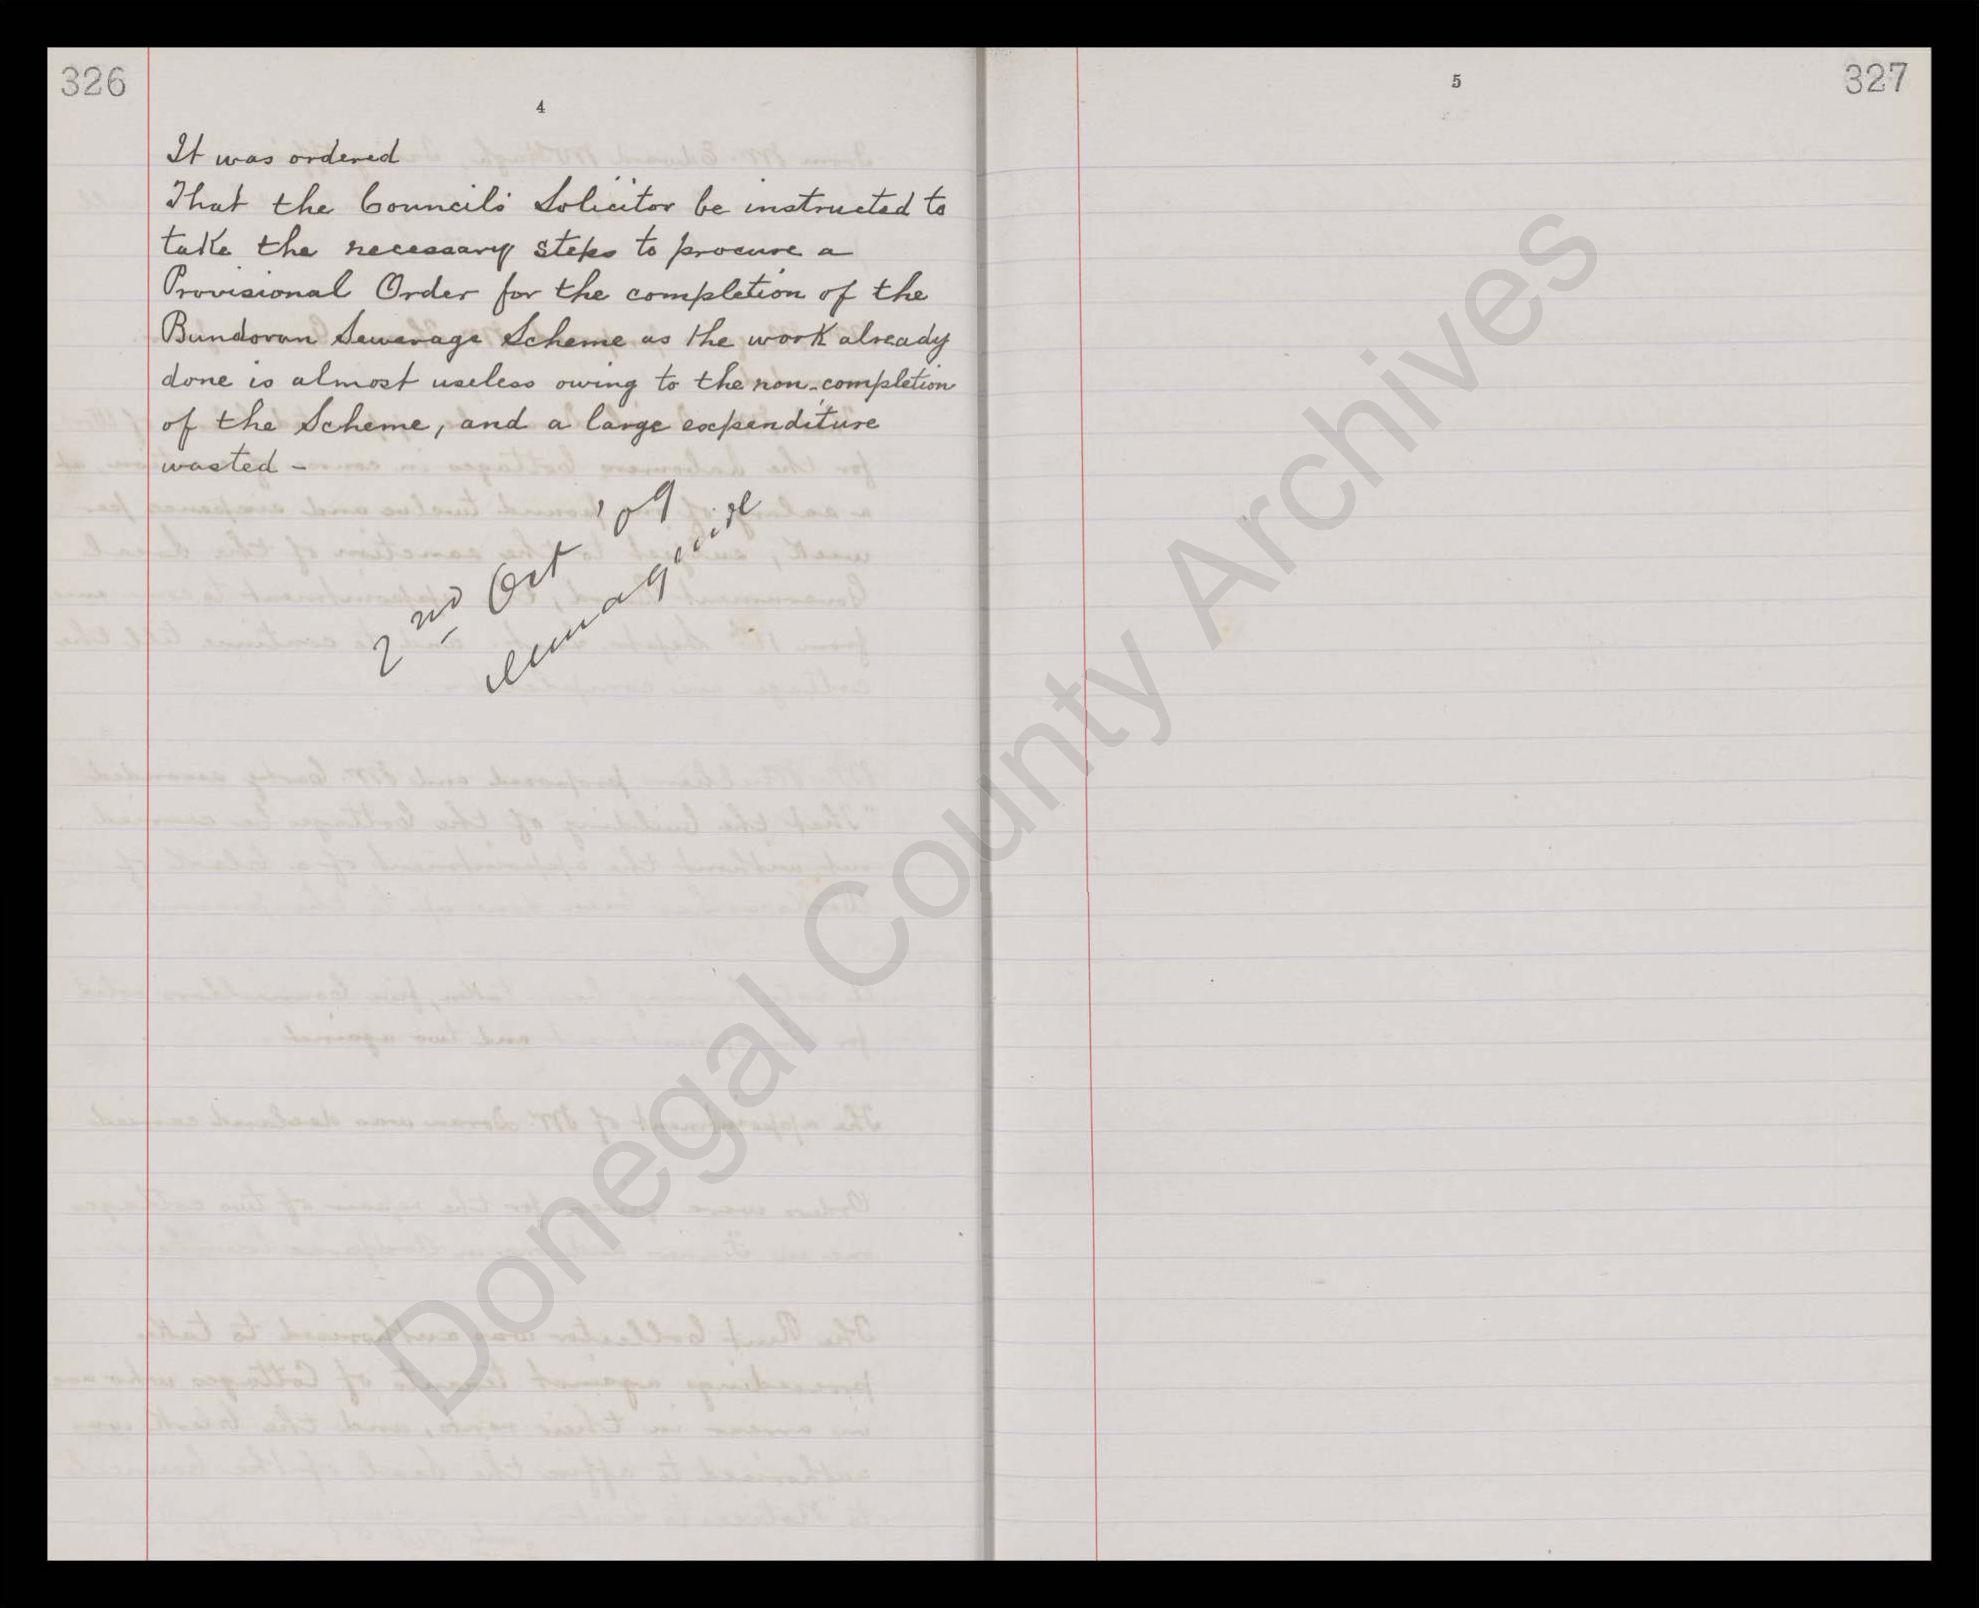 326
4
It was ordered
That the Council's Solicitor be instructed to
take the necessary steps to procure a
Provisional Order for the completion of the
Bundoran Sewerage Scheme as the work already
done is almost useless owing to the non-completion
of the Scheme, and a large expenditure
wasted -
2nd Oct '09
5
327
Donegal County Archives